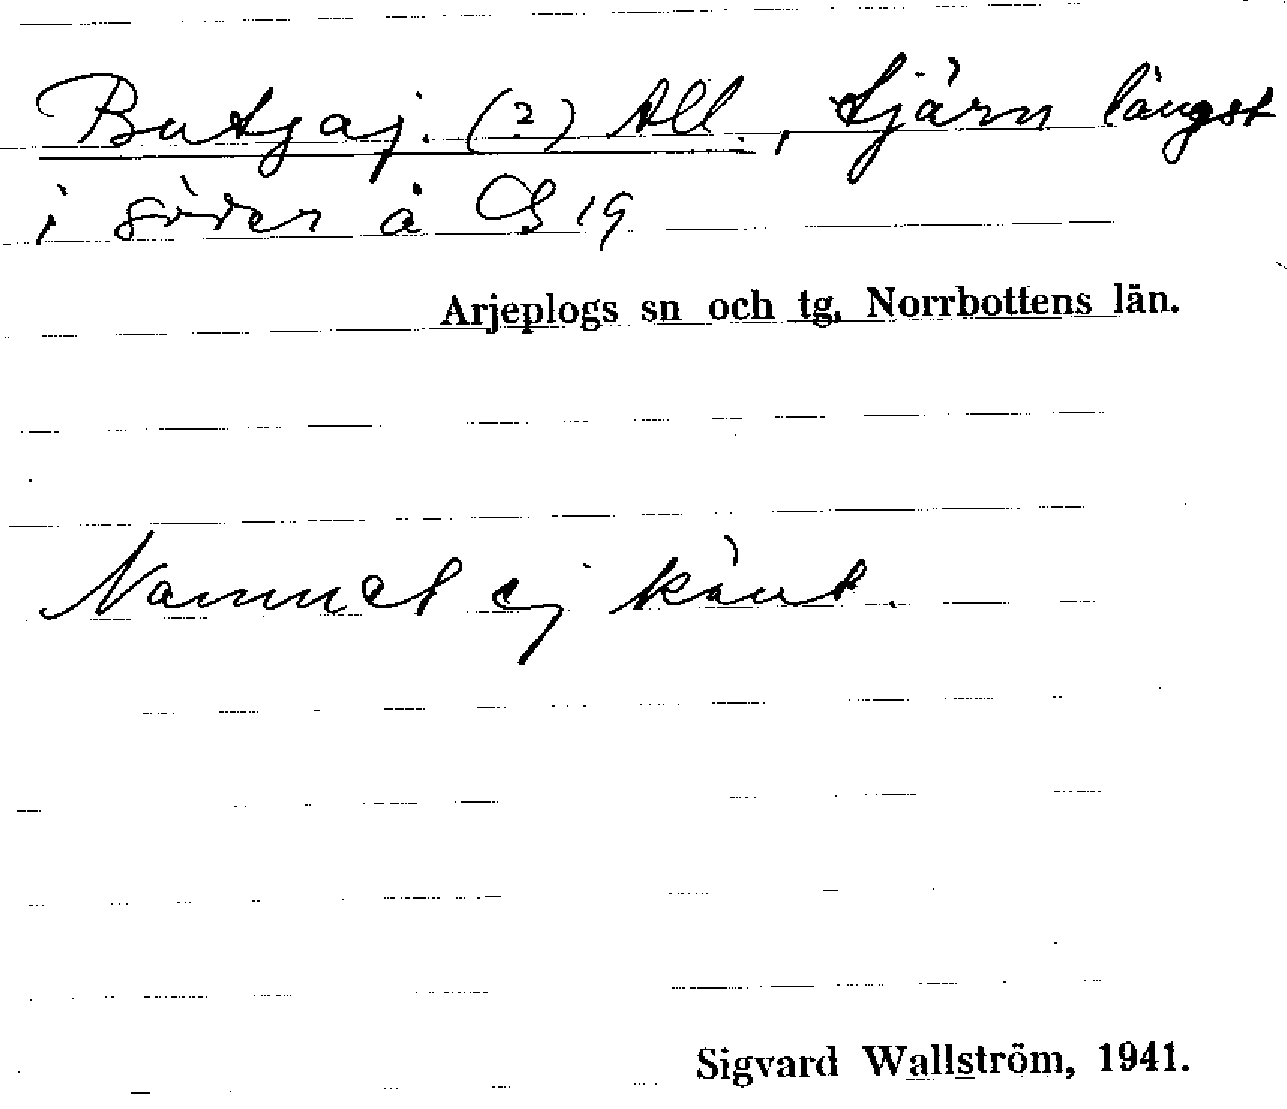 Butjaj. (?) All., tjärn längst
i söder å B 19
Arjeplogs sn och tg, Norrbottens län.
Namnet ej känt.
Sigvard Wallström, 1941.